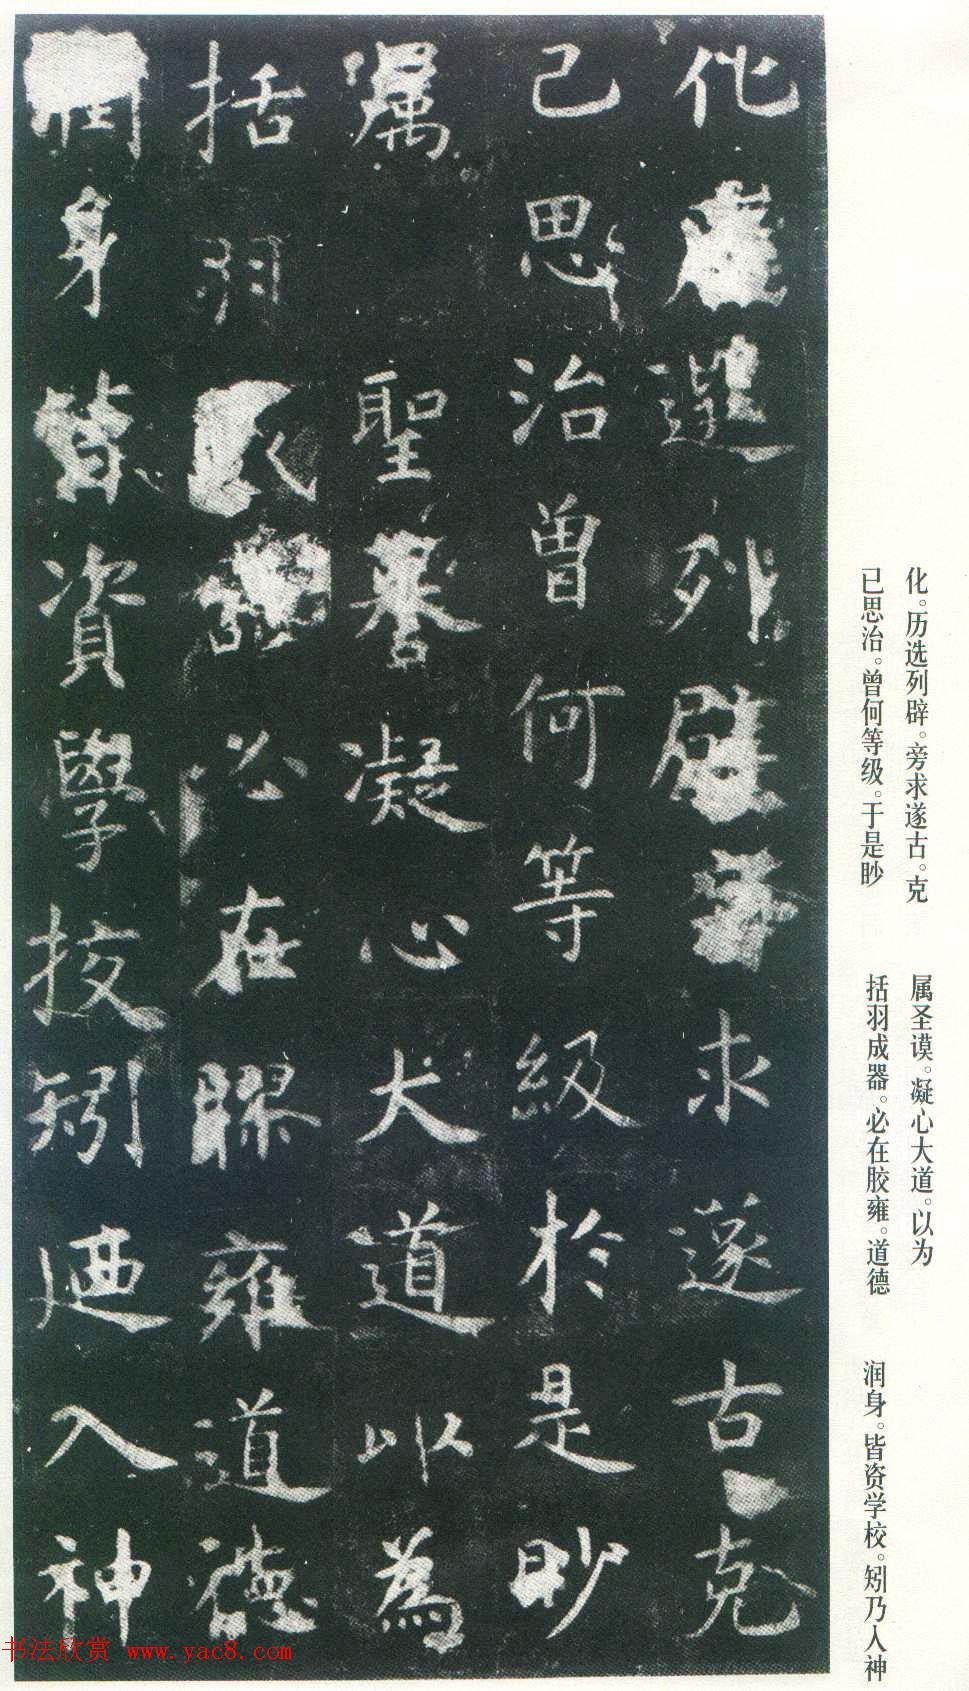 化歷選列辟旁求遂古克
已思治曾何等級於是眇
屬聖謩凝心大道以為
括羽必在膠雍道德
潤身皆資學校矧廼入神
化。历选列辟。旁求遂古。克
已思治。曾何等级。于是眇
属圣谟。凝心大道。以为
括羽成器。必在胶雍。道德
润身。皆资学校。矧乃人神
书法欣赏 www.yac8.com